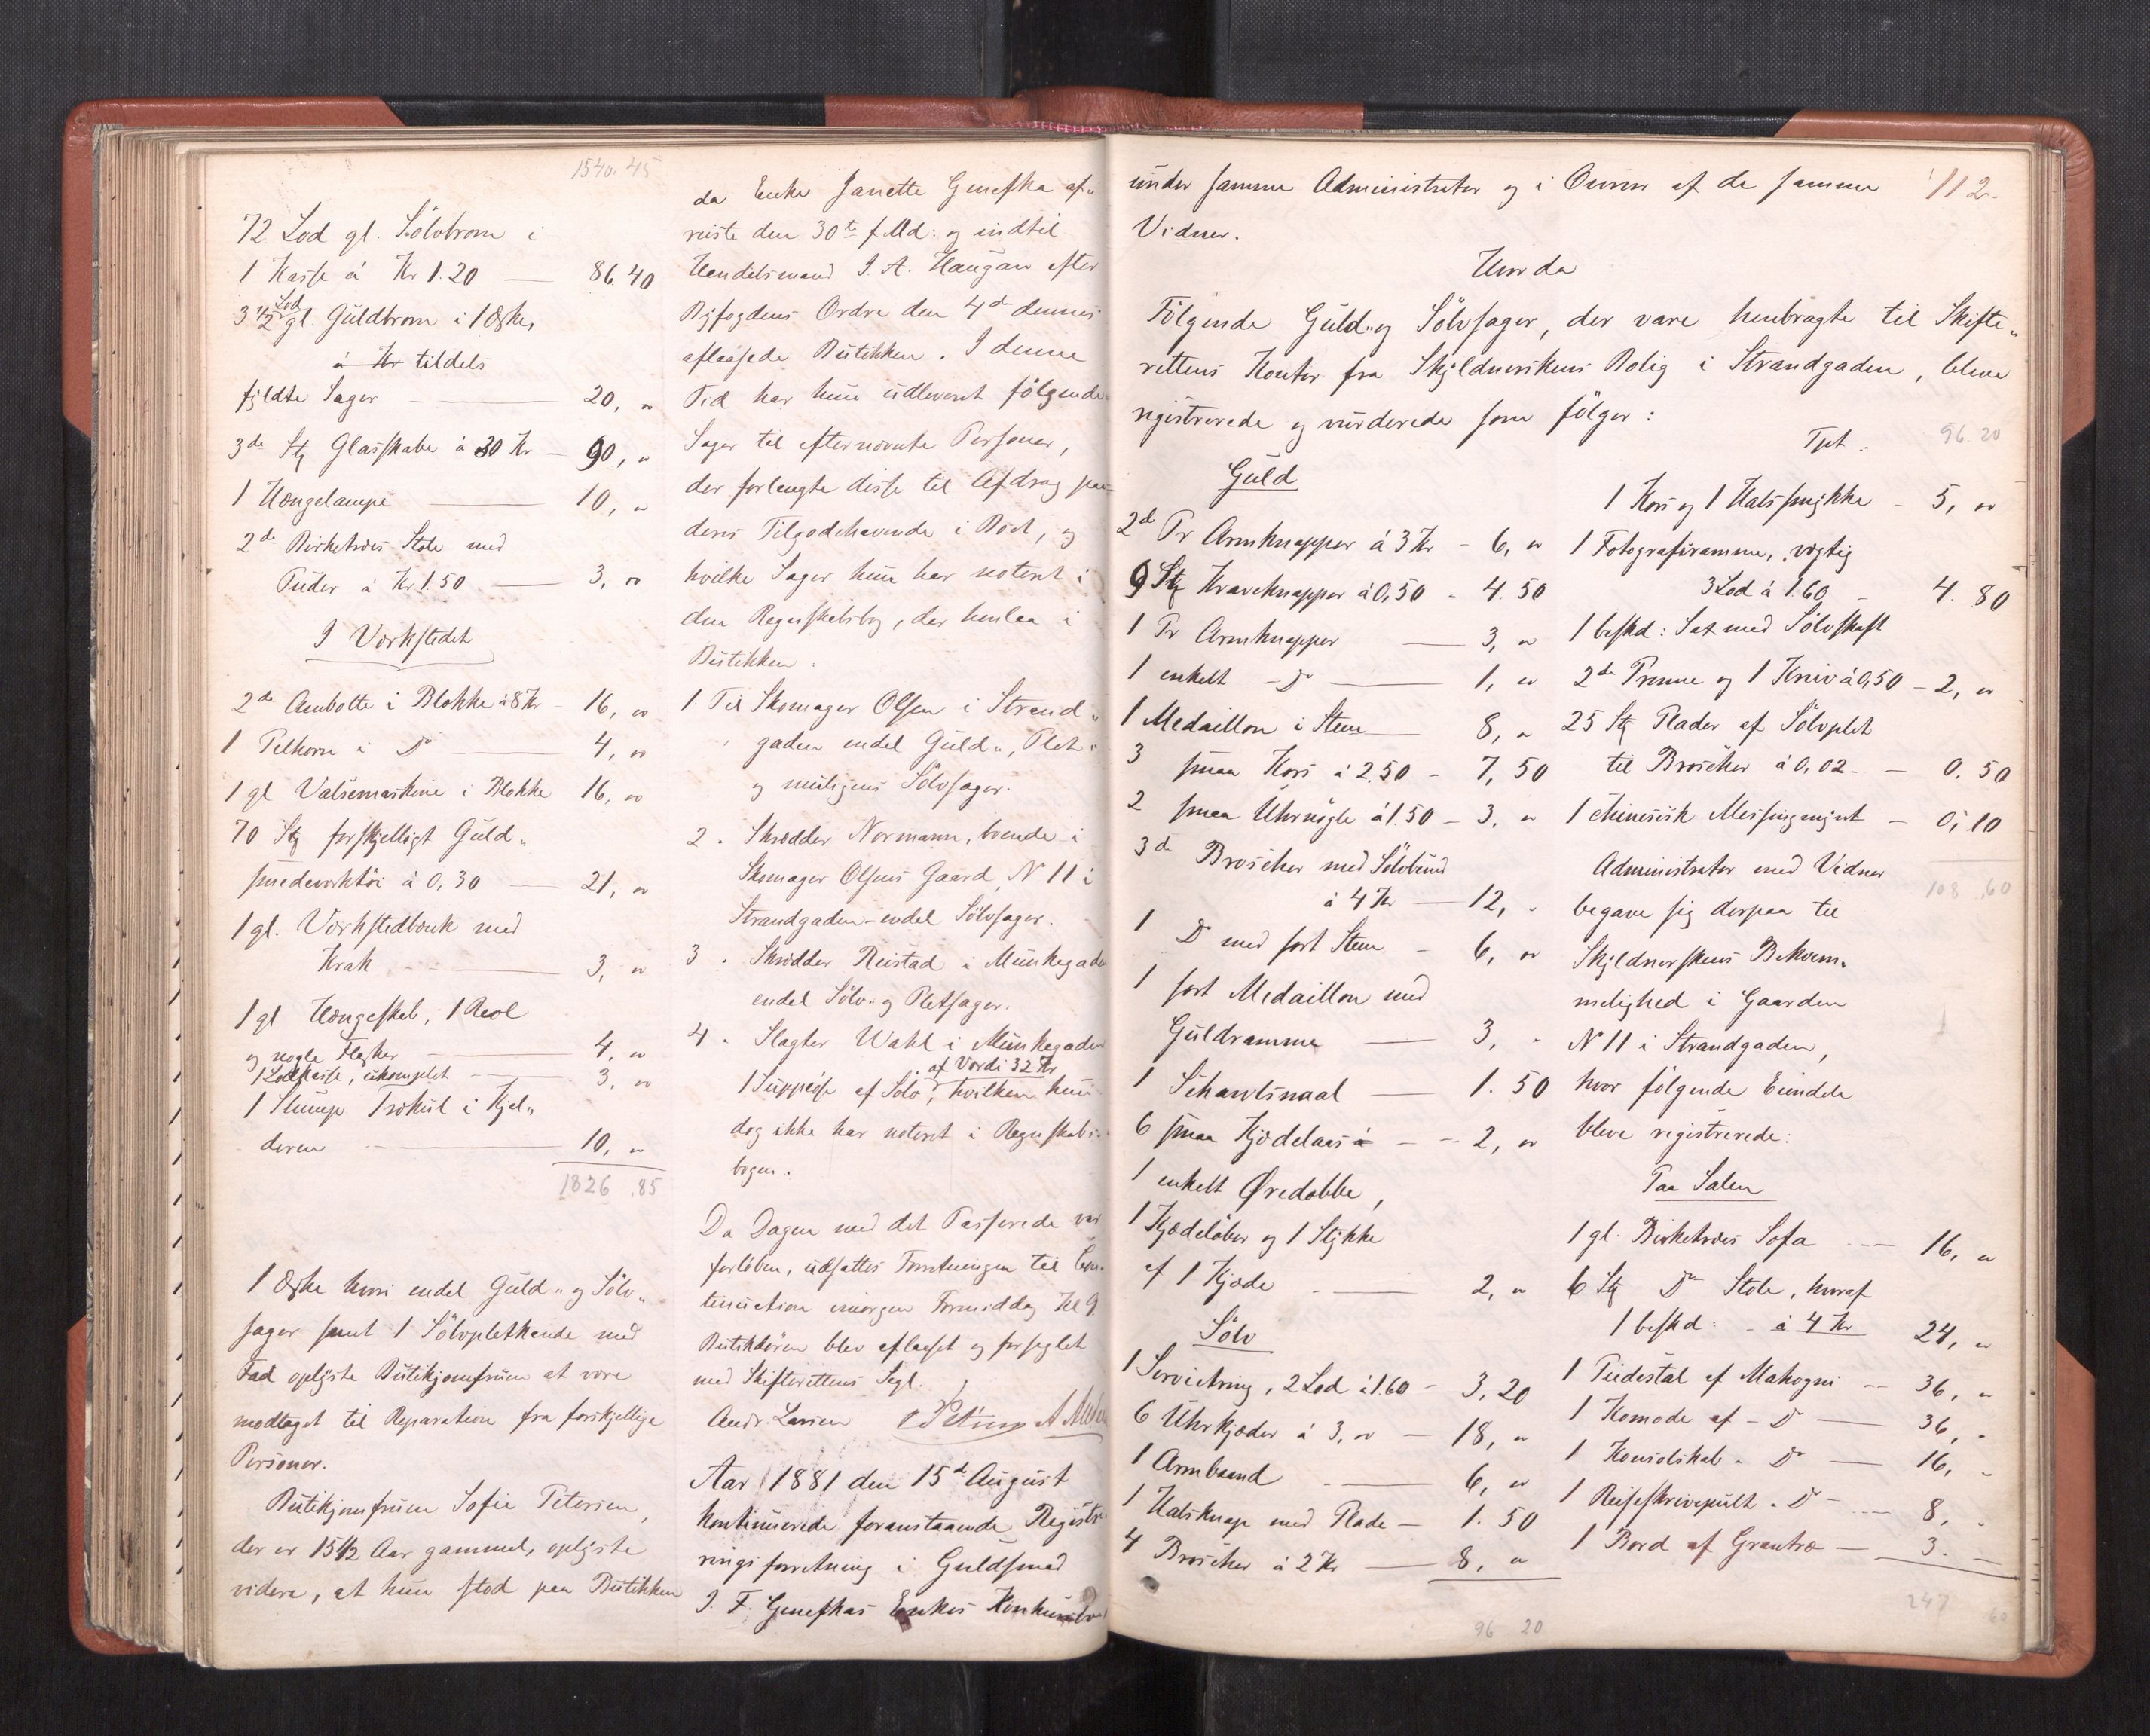 1540. 45
72 Lod gl. Sölvbrom i
1 Kasse á Kr 1.20 — 86.40
3 1/2 Lod gl. Guldbrom i 1 Æske,
á Kr tildels
fyldte Sager — 20, "
3de Stk Glasskabe á 30 Kr — 90, "
1 Hængelampe — 10, "
2de Birketræs Stole med
Puder á Kr 1.50 — 3, "
I Værkstedet
2de Ambolte i Blokke á 8 Kr — 16, "
1 Pelhorn i Do — 4, "
1 gl Valsemaskine i Blokke 16, "
70 Stk forskjelligt Guld„
smedeværktöi á 0,30 — 21, "
1 gl. Værkstedbænk med
Krak — 3, "
1 gl Hængeskab, 1 Reol
og nogle Flasker — 4, "
1 Lodkasse, ukomplet — 3, "
1 Slump Trækul i Kjel„
deren — 10, "
1826 .85
1 Æske hvori endel Guld„ og Sölv„
sager samt 1 Sölvpletkande med
Fad oplyste Butikjomfruen at være
modtaget til Reparation fra forskjellige
Personer.
Butikjomfruen Sofie Petersen,
der er 15 1/2 Aar gammel, oplyste
videre, at hun stod paa Butikken
da Enke Janette Genefka af„
reiste den 30te f. Md: og indtil
Handelsmand I. A. Haugan efter
Byfogdens Ordre den 4de dennes
aflaasede Butikken. I denne
Tid har hun udleveret fölgende
Sager til efternævnte Personer,
der forlangte disse til Afdrag paa
deres Tilgodehavende i Boet, og
hvilke Sager hun har noteret i
den Regnskabsbog, der henlaa i
Butikken:
1. Til Skomager Olsen i Strand„
gaden endel Guld„, Plet„
og muligens Sölvsager.
2. Skrædder Normann, boende i
Skomager Olsens Gaard, N 11 i
Strandgaden – endel Sölvsager.
3. Skrædder Reistad i Munkegaden
endel Sölv- og Pletsager.
4. Slagter Wahl i Munkegaden
af Værdi 32 Kr
1 Suppeöse af Sölv, hvilken hun
dog ikke har noteret i Regnskabs„
bogen.
Da Dagen med det Passerede var
forlöben, udsattes Forretningen til Con„
tinuation imorgen Formiddag Kl 9.
Butikdören blev aflaaset og forseglet
med Skifterettens Segl.
Andr. Larsen
Aar 1881 den 15de August
kontinuerede foranstaaende Registre„
ringsforretning i Guldsmed
I. F. Genefkas Enkes Konkursbo
under samme Administrator og i Overvær af de samme
112.
Vidner.
Hvorda
Fölgende Guld- og Sölvsager, der vare henbragte til Skifte„
rettens Kontor fra Skyldnerskens Bolig i Strandgaden, bleve
registrerede og vurderede som fölger:
Guld
2de Pr Armknapper á 3 Kr – 6, "
9 Stk Kraveknapper á 0,50 – 4.50
1 Pr Armknapper — 3, "
1 enkelt – Do — 1, "
1 Medaillon i Steen — 8, "
3 smaa Kors á 2.50 – 7,50
2 smaa Uhrnögle á 1.50 – 3, "
3de Broscher med Sölvbund
á 4 Kr — 12, "
1 Do med sort Steen – 6, "
1 sort Medaillon med
Guldramme — 3, "
1 Schawlsnaal — 1. 50
6 smaa Kjædelaas á – – 2, "
1 enkelt Øredobbe,
1 Kjædelöber og 1 Stykke
af 1 Kjæde — 2, "
Sölv
1 Servietring, 2 Lod á 1.60 – 3,20
6 Uhrkjæder á 3, " – 18, "
1 Armbaand — 6, "
1 Halsknap med Plade – 1. 50
4 Broscher á 2 Kr — 8, "
96 20
Tpt. 96. 20
1 Kors og 1 Halssmykke – 5, "
1 Fotografiramme, vægtig
3 Lod á 1.60 – 4. 80
1 beskd: Sax med Sölvskaft
2de Prenne og 1 Kniv á 0,50 – 2, "
25 Stk Plader af Sölvplet
til Broscher á 0,02 – 0. 50
1 chinesisk Messingmynt – 0,10
108 .60
Administrator med Vidner
begave sig derpaa til
Skyldnerskens Bekvem„
melighed i Gaarden
N 11 i Strandgaden,
hvor fölgende Eiendele
bleve registrerede:
Paa Salen
1 gl. Birketræs Sofa — 16, "
6 Stk Do Stole, hvoraf
1 beskd: – á 4 Kr 24, "
1 Piedestal af Mahogni — 36, "
1 Komode af – Do — 36, "
1 Konsolskab – Do — 16, "
1 Reiseskrivepult – Do — 8, "
1 Bord af Grantræ — 3. –
247 60